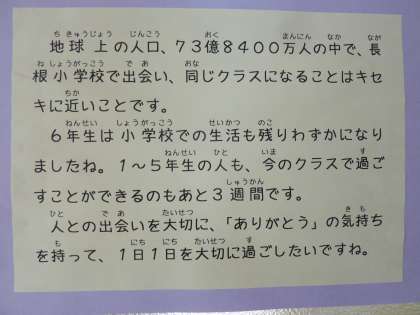 地球上の人口、73億8400万人の中で、長
根小学校で出会い、同じクラスになることはキセ
キに近いことです。
6年生は小学校での生活も残りわずかになり
ましたね。1～5年生の人も、今のクラスで過ご
すことができるのもあと3週間です。
人との出会いを大切に、「ありがとう」の気持ち
を持って、1日1日を大切に過ごしたいですね。